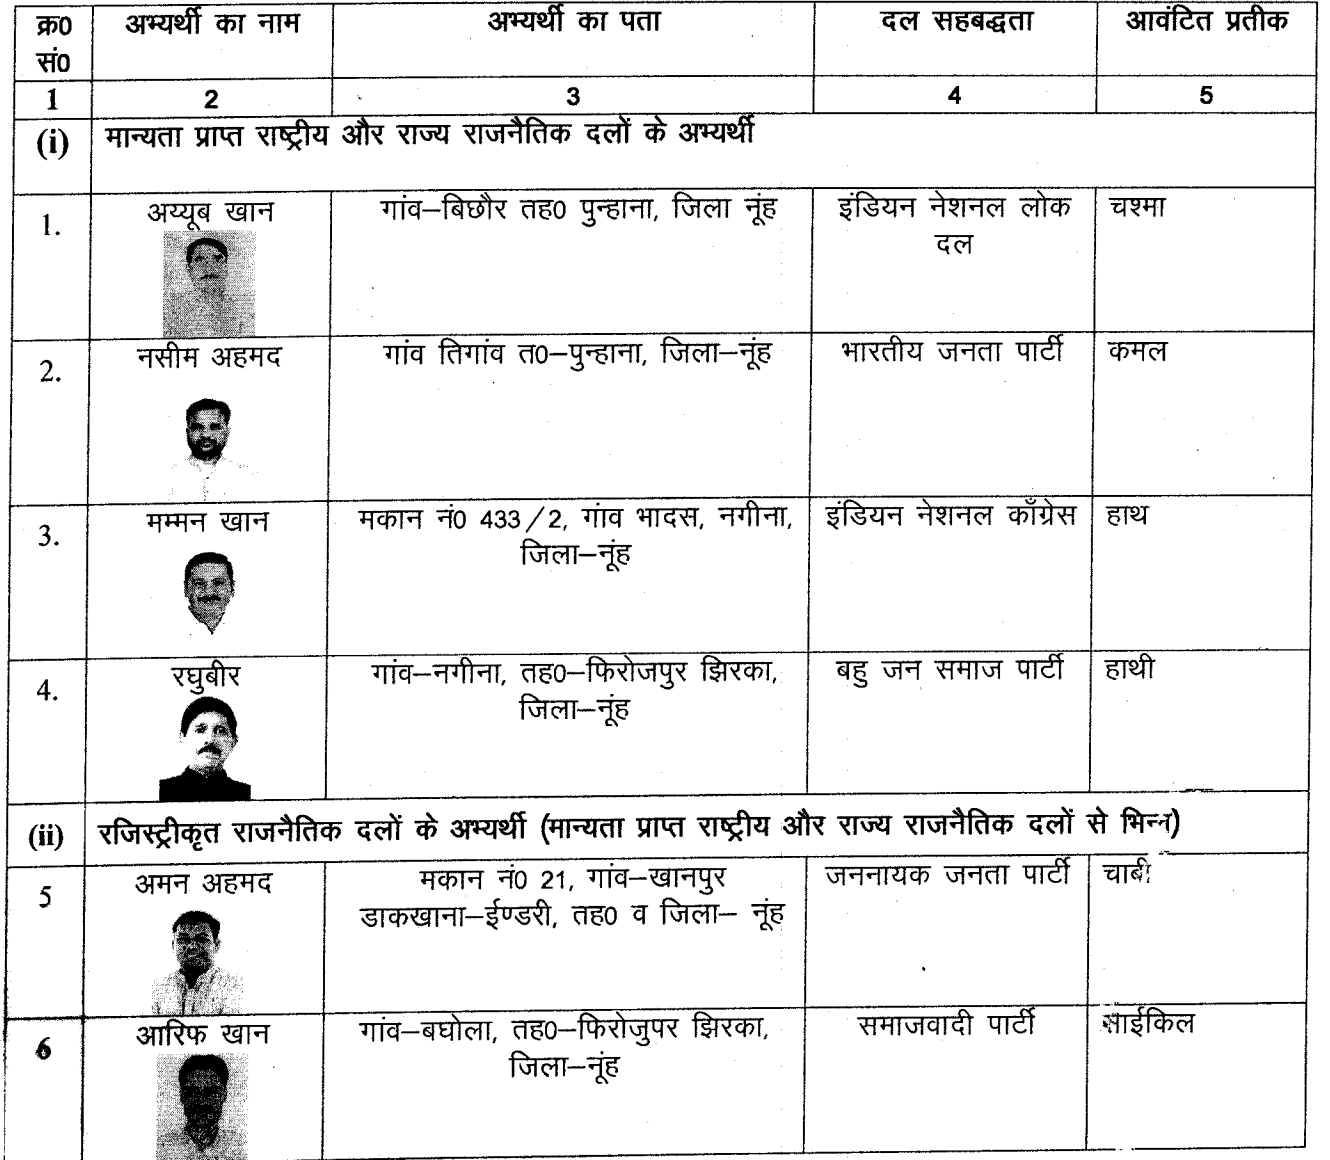 क्र0 सं0 अभ्यर्थी का नाम अभ्यर्थी का पता दल सहबद्धता आवंटित प्रतीक
1 2 3 4 5
(i) मान्यता प्राप्त राष्ट्रीय और राज्य राजनैतिक दलों के अभ्यर्थी
1. अय्यूब खान गांव–बिछौर तह0 पुन्हाना, जिला नूंह इंडियन नेशनल लोक चश्मा
दल
2. नसीम अहमद गांव तिगांव त0–पुन्हाना, जिला–नूंह भारतीय जनता पार्टी कमल
3. मम्मन खान मकान नं0 433/2, गांव भादस, नगीना, इंडियन नेशनल काँग्रेस हाथ
जिला–नूंह
4. रघुबीर गांव–नगीना, तह0–फिरोजपुर झिरका, बहु जन समाज पार्टी हाथी
जिला–नूंह
(ii) रजिस्ट्रीकृत राजनैतिक दलों के अभ्यर्थी (मान्यता प्राप्त राष्ट्रीय और राज्य राजनैतिक दलों से भिन्न)
5 अमन अहमद मकान नं0 21, गांव–खानपुर जननायक जनता पार्टी चाबी
डाकखाना–ईण्डरी, तह0 व जिला– नूंह
6 आरिफ खान गांव–बघोला, तह0–फिरोजुपर झिरका, समाजवादी पार्टी साईकिल
जिला–नूंह